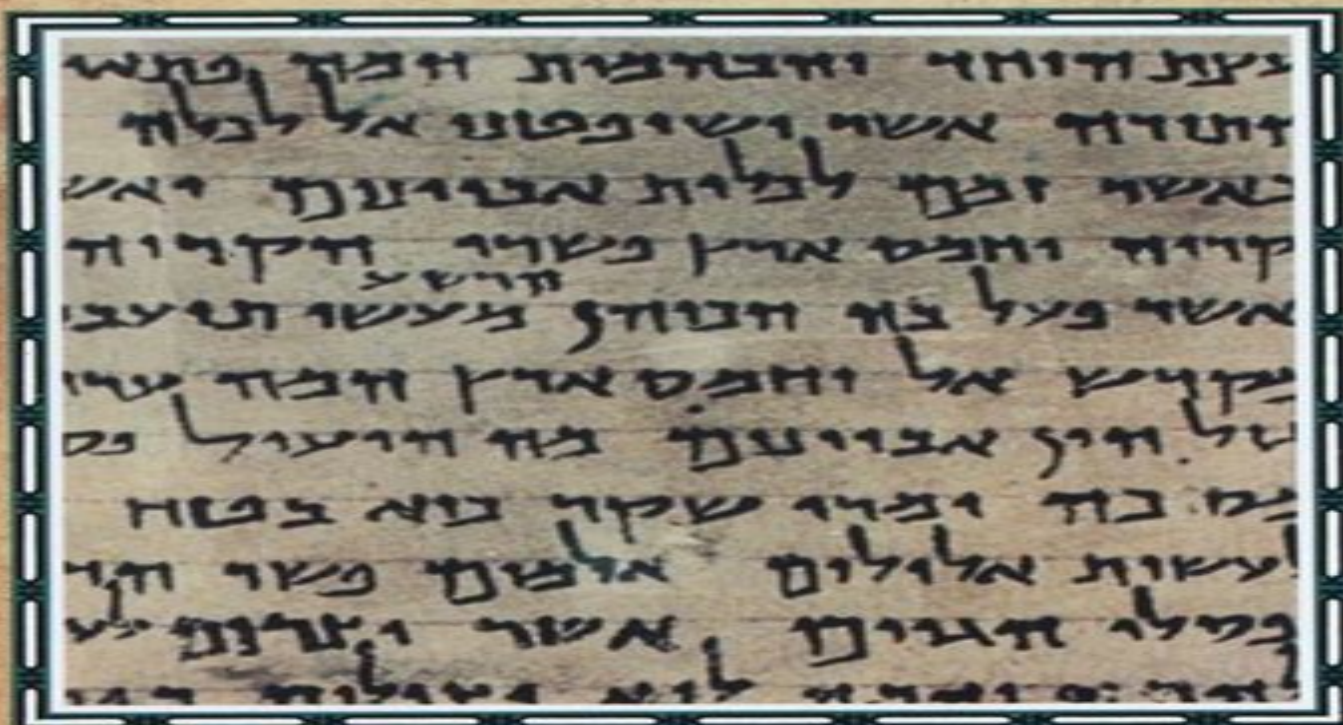 עצת היחד והבהמות המה פתאי
התורה אשר ישופטנו אל לכלה
כאשר זמם לכלות אביונים ואש
קריה וחמס ארץ פשרו הקריה
הרשע
אשר פעל בה הכוהן מעשי תועב
מקדש אל וחמס ארץ המה ערי
גזל הון אביונים מה הועיל פס
ומרי שקר כיא בטח
לעשות אלילים אלמים פשר הד
פסלי הגוים אשר יצרום
לוא יצילום